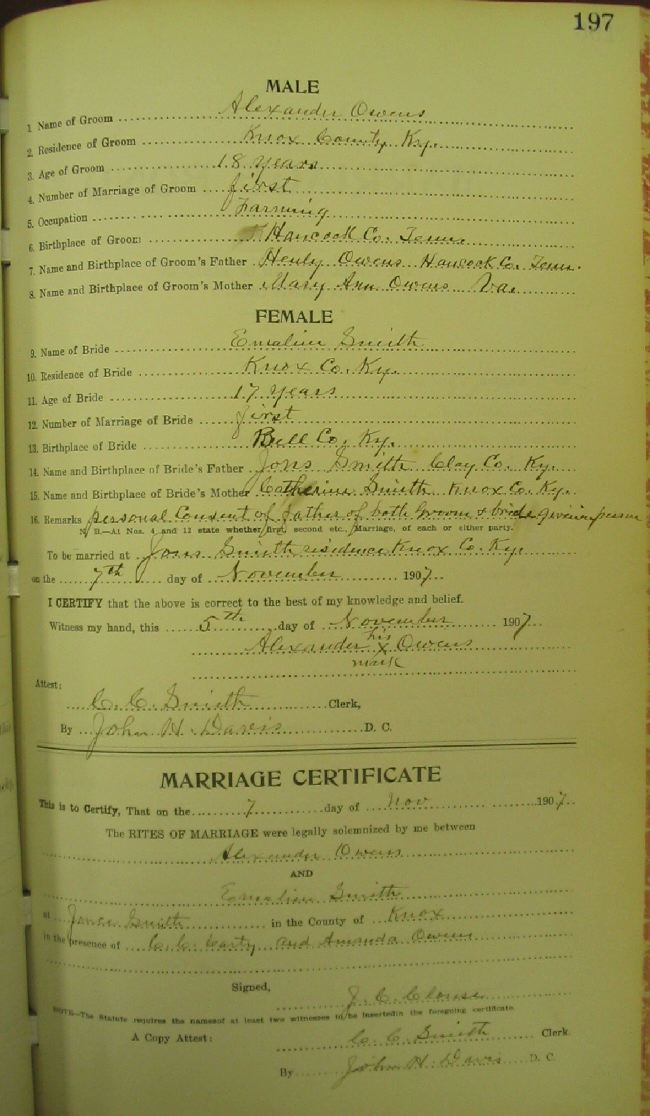 197
MALE
1 Name of Groom Alexander Owens
2. Residence of Groom Knox County Ky.
3. Age of Groom 18 years
4. Number of Marriage of Groom first
5. Occupation Farming
6. Birthplace of Groom Hancock Co. Tenn
7. Name and Birthplace of Groom's Father Henly Owens Hancock Co. Tenn.
8. Name and Birthplace of Groom's Mother Mary Ann Owens Va.
FEMALE
9. Name of Bride Emaline Smith
10. Residence of Bride Knox Co. Ky.
11. Age of Bride 17 years
12. Number of Marriage of Bride first
13. Birthplace of Bride Bell Co. Ky.
14. Name and Birthplace of Bride's Father Jons Smith Clay Co. Ky.
15. Name and Birthplace of Bride's Mother Catherine Smith Knox Co. Ky.
16. Remarks personal Consent of father of both groom & bride given in person
N. B.—At Nos. 4 and 12 state whether first, second etc., Marriage, of each or either party.
To be married at Jons Smith residence Knox Co. Ky.
on the 7th day of November 1907
I CERTIFY that the above is correct to the best of my knowledge and belief.
Witness my hand, this 5th day of November 1907
Alexander his x Owens
mark
Attest:
C. C. Smith Clerk,
By John H. Davis D. C.
MARRIAGE CERTIFICATE
This is to Certify, That on the 7 day of Nov 1907
The RITES OF MARRIAGE were legally solemnized by me between
Alexander Owens
AND
Emaline Smith
at Jones Smith in the County of Knox
in the presence of C. C. Carty and Amanda Owens
Signed,
J. C. Clouse
NOTE—The Statute requires the names of at least two witnesses to be inserted in the foregoing certificate.
A Copy Attest: C. C. Smith Clerk.
By John H. Davis D. C.